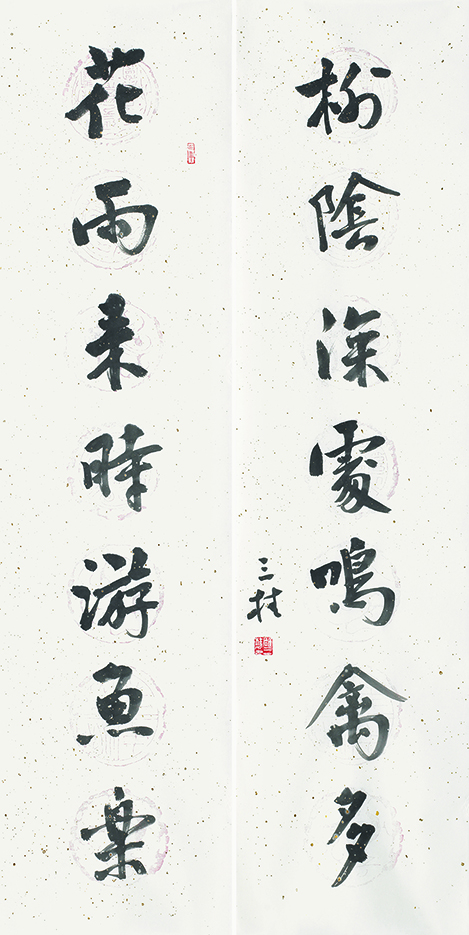 花雨来時游魚樂
柳陰深處鳴禽多